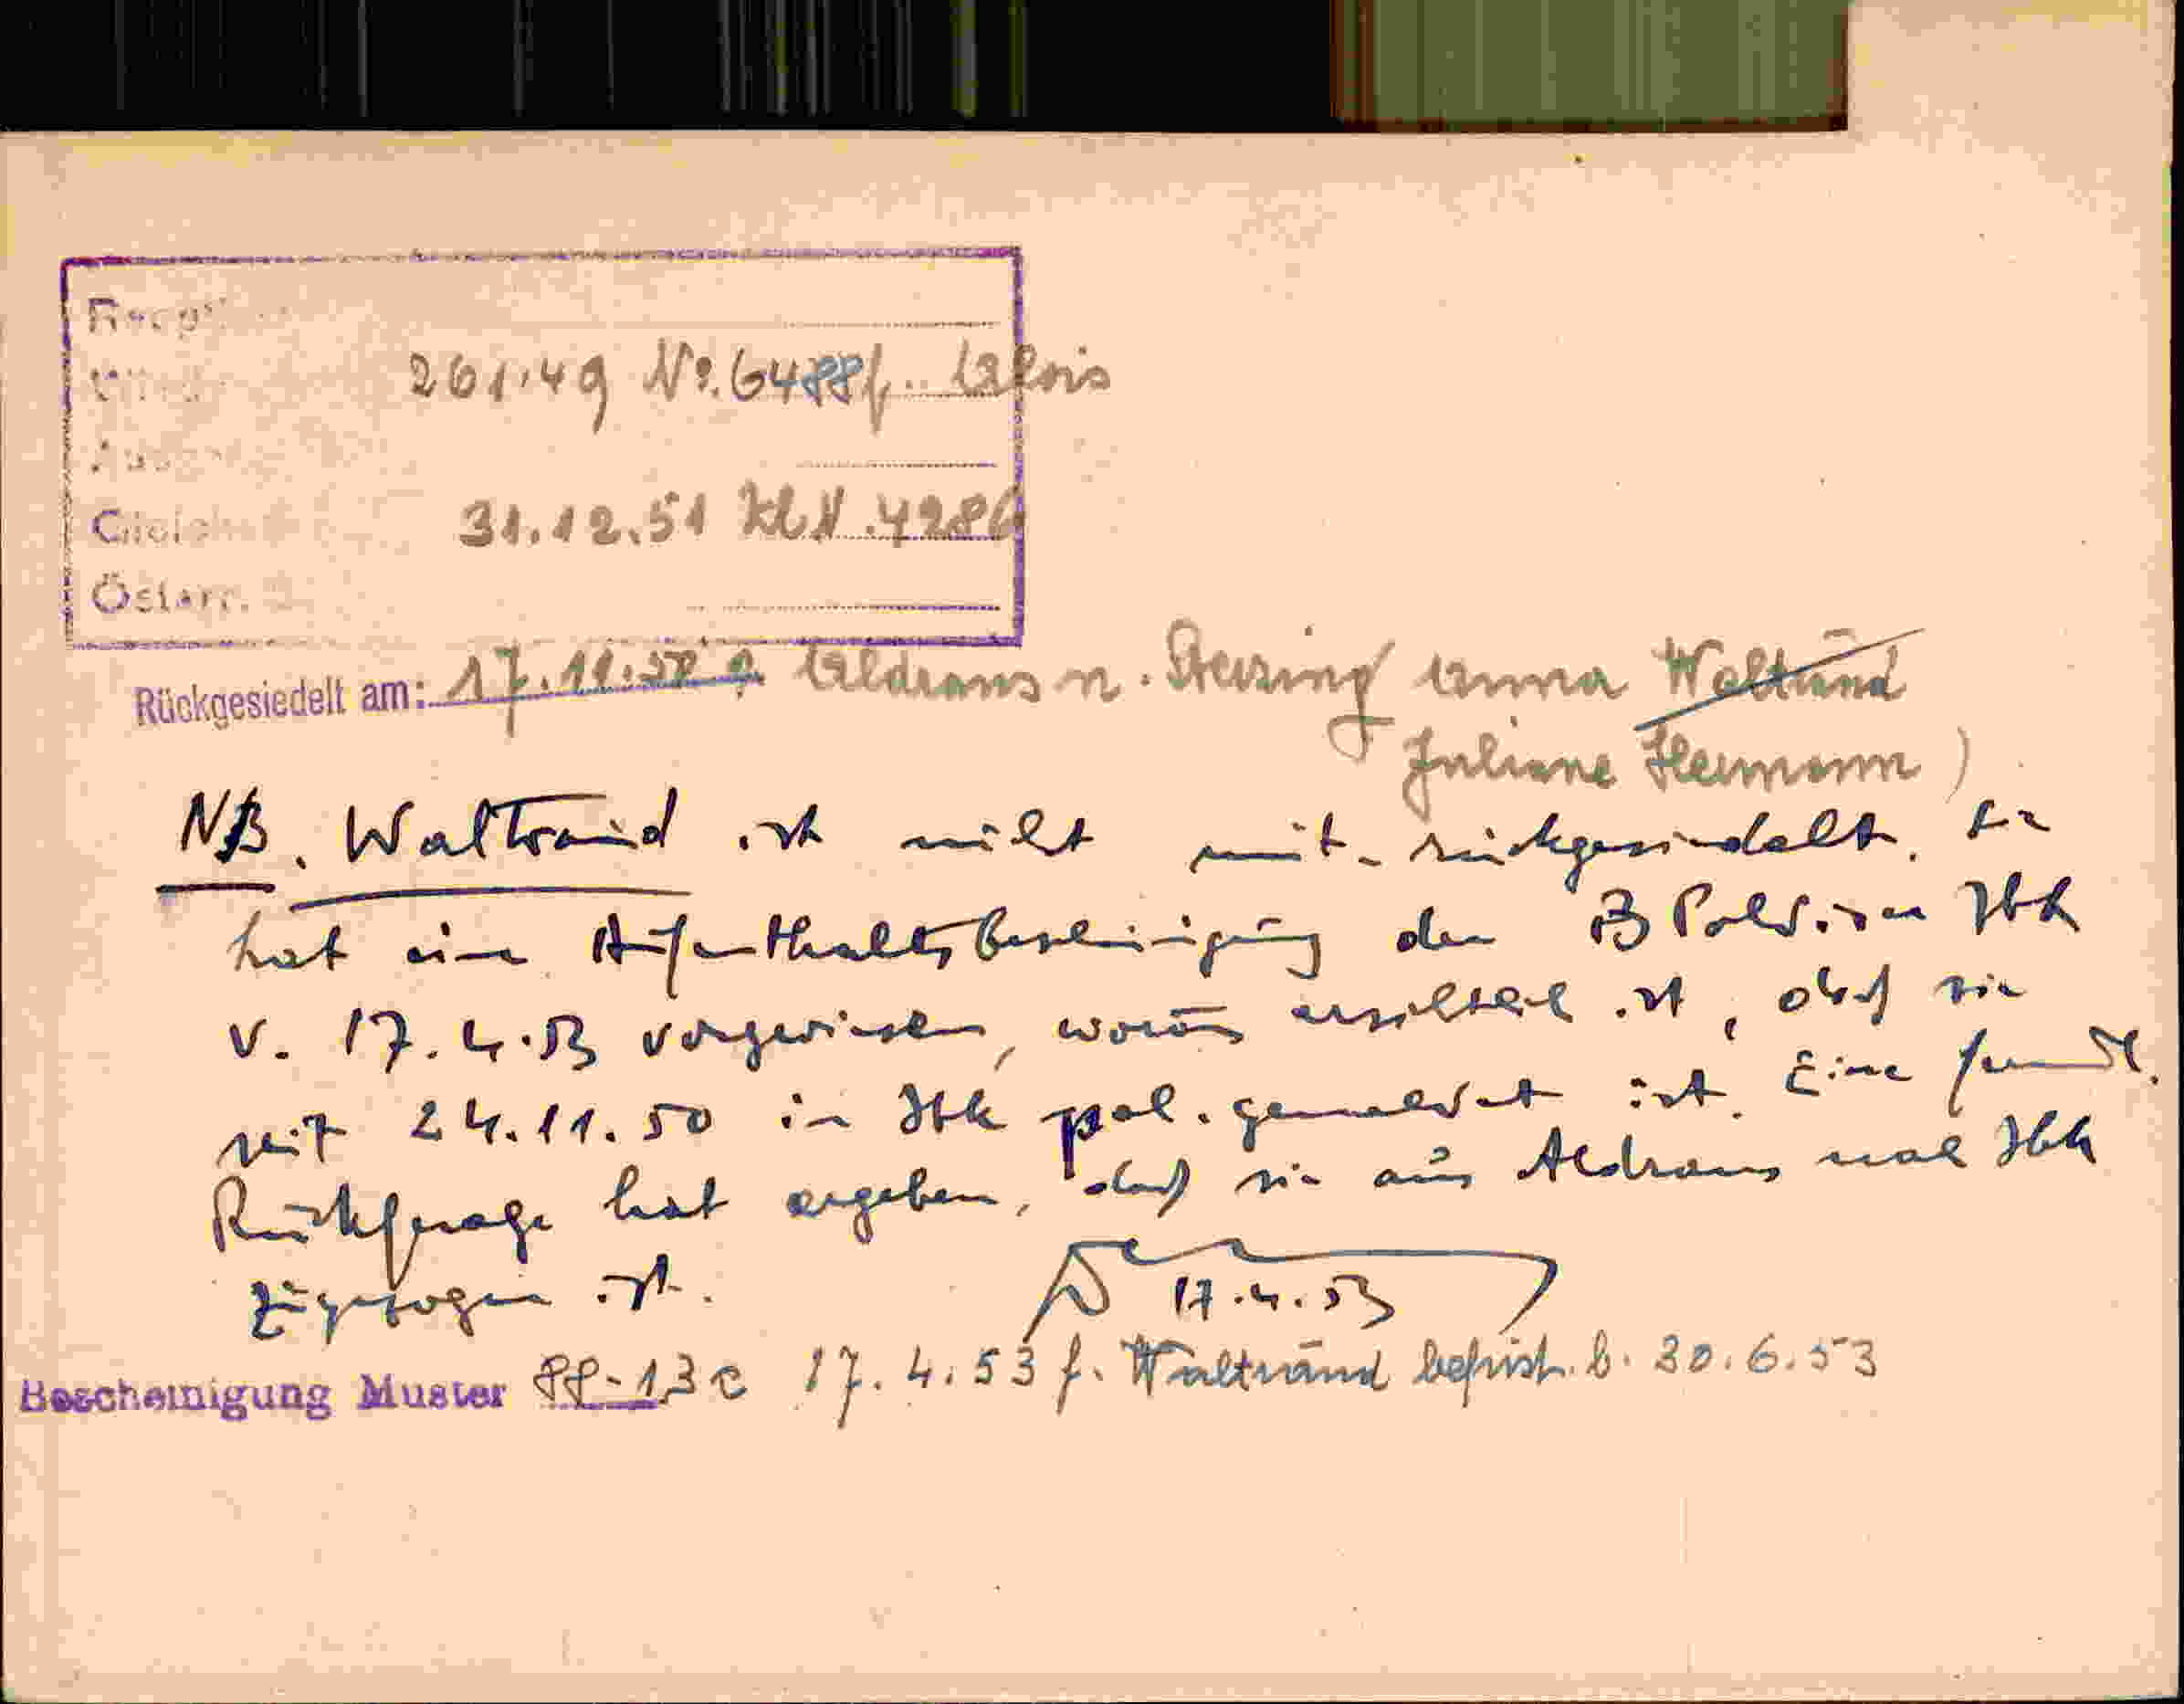 261.49 No. 6488 f. Alois
31.12.51 Kl N. 4286
Österr.
Rückgesiedelt am: 17.11.50 v. Aldrans n. Sterzing Anna Waltraud
Juliane Hermann)
NB. Waltraud ist nicht mit-rückgesiedelt. Sie
hat eine Aufenthaltsbescheinigung der B Pold.ion Ibk
v. 17.4.53 vorgewiesen, woraus ersichtlich ist, daß sie
seit 24.11.50 in Ibk pol. gemeldet ist. Eine fernmdl.
Rückfrage hat ergeben, daß sie aus Aldrans nach Ibk
zugezogen ist. 17.4.53
Bescheinigung Muster PP-13c 17.4.53 f. Waltraud befrist. b. 30.6.53